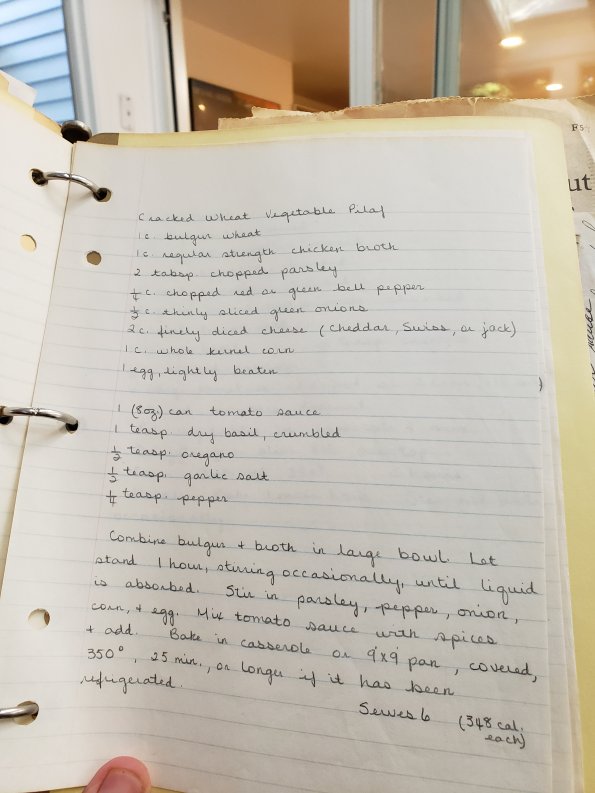 Cracked Wheat Vegetable Pilaf
1 c. bulgur wheat
1 c. regular strength chicken broth
2 tabsp. chopped parsley
1/4 c. chopped red or green bell pepper
1/3 c. thinly sliced green onions
2 c. finely diced cheese (cheddar, Swiss, or jack)
1 c. whole kernel corn
1 egg, lightly beaten
1 (8 oz.) can tomato sauce
1 teasp. dry basil, crumbled
1/2 teasp. oregano
1/2 teasp. garlic salt
1/4 teasp. pepper
Combine bulgur + broth in large bowl. Let
stand 1 hour, stirring occasionally, until liquid
is absorbed. Stir in parsley, pepper, onion,
corn, + egg. Mix tomato sauce with spices
+ add. Bake in casserole or 9x9 pan, covered,
350°, 25 min., or longer if it has been
refrigerated.
Serves 6 (348 cal.
each)
F5
ut